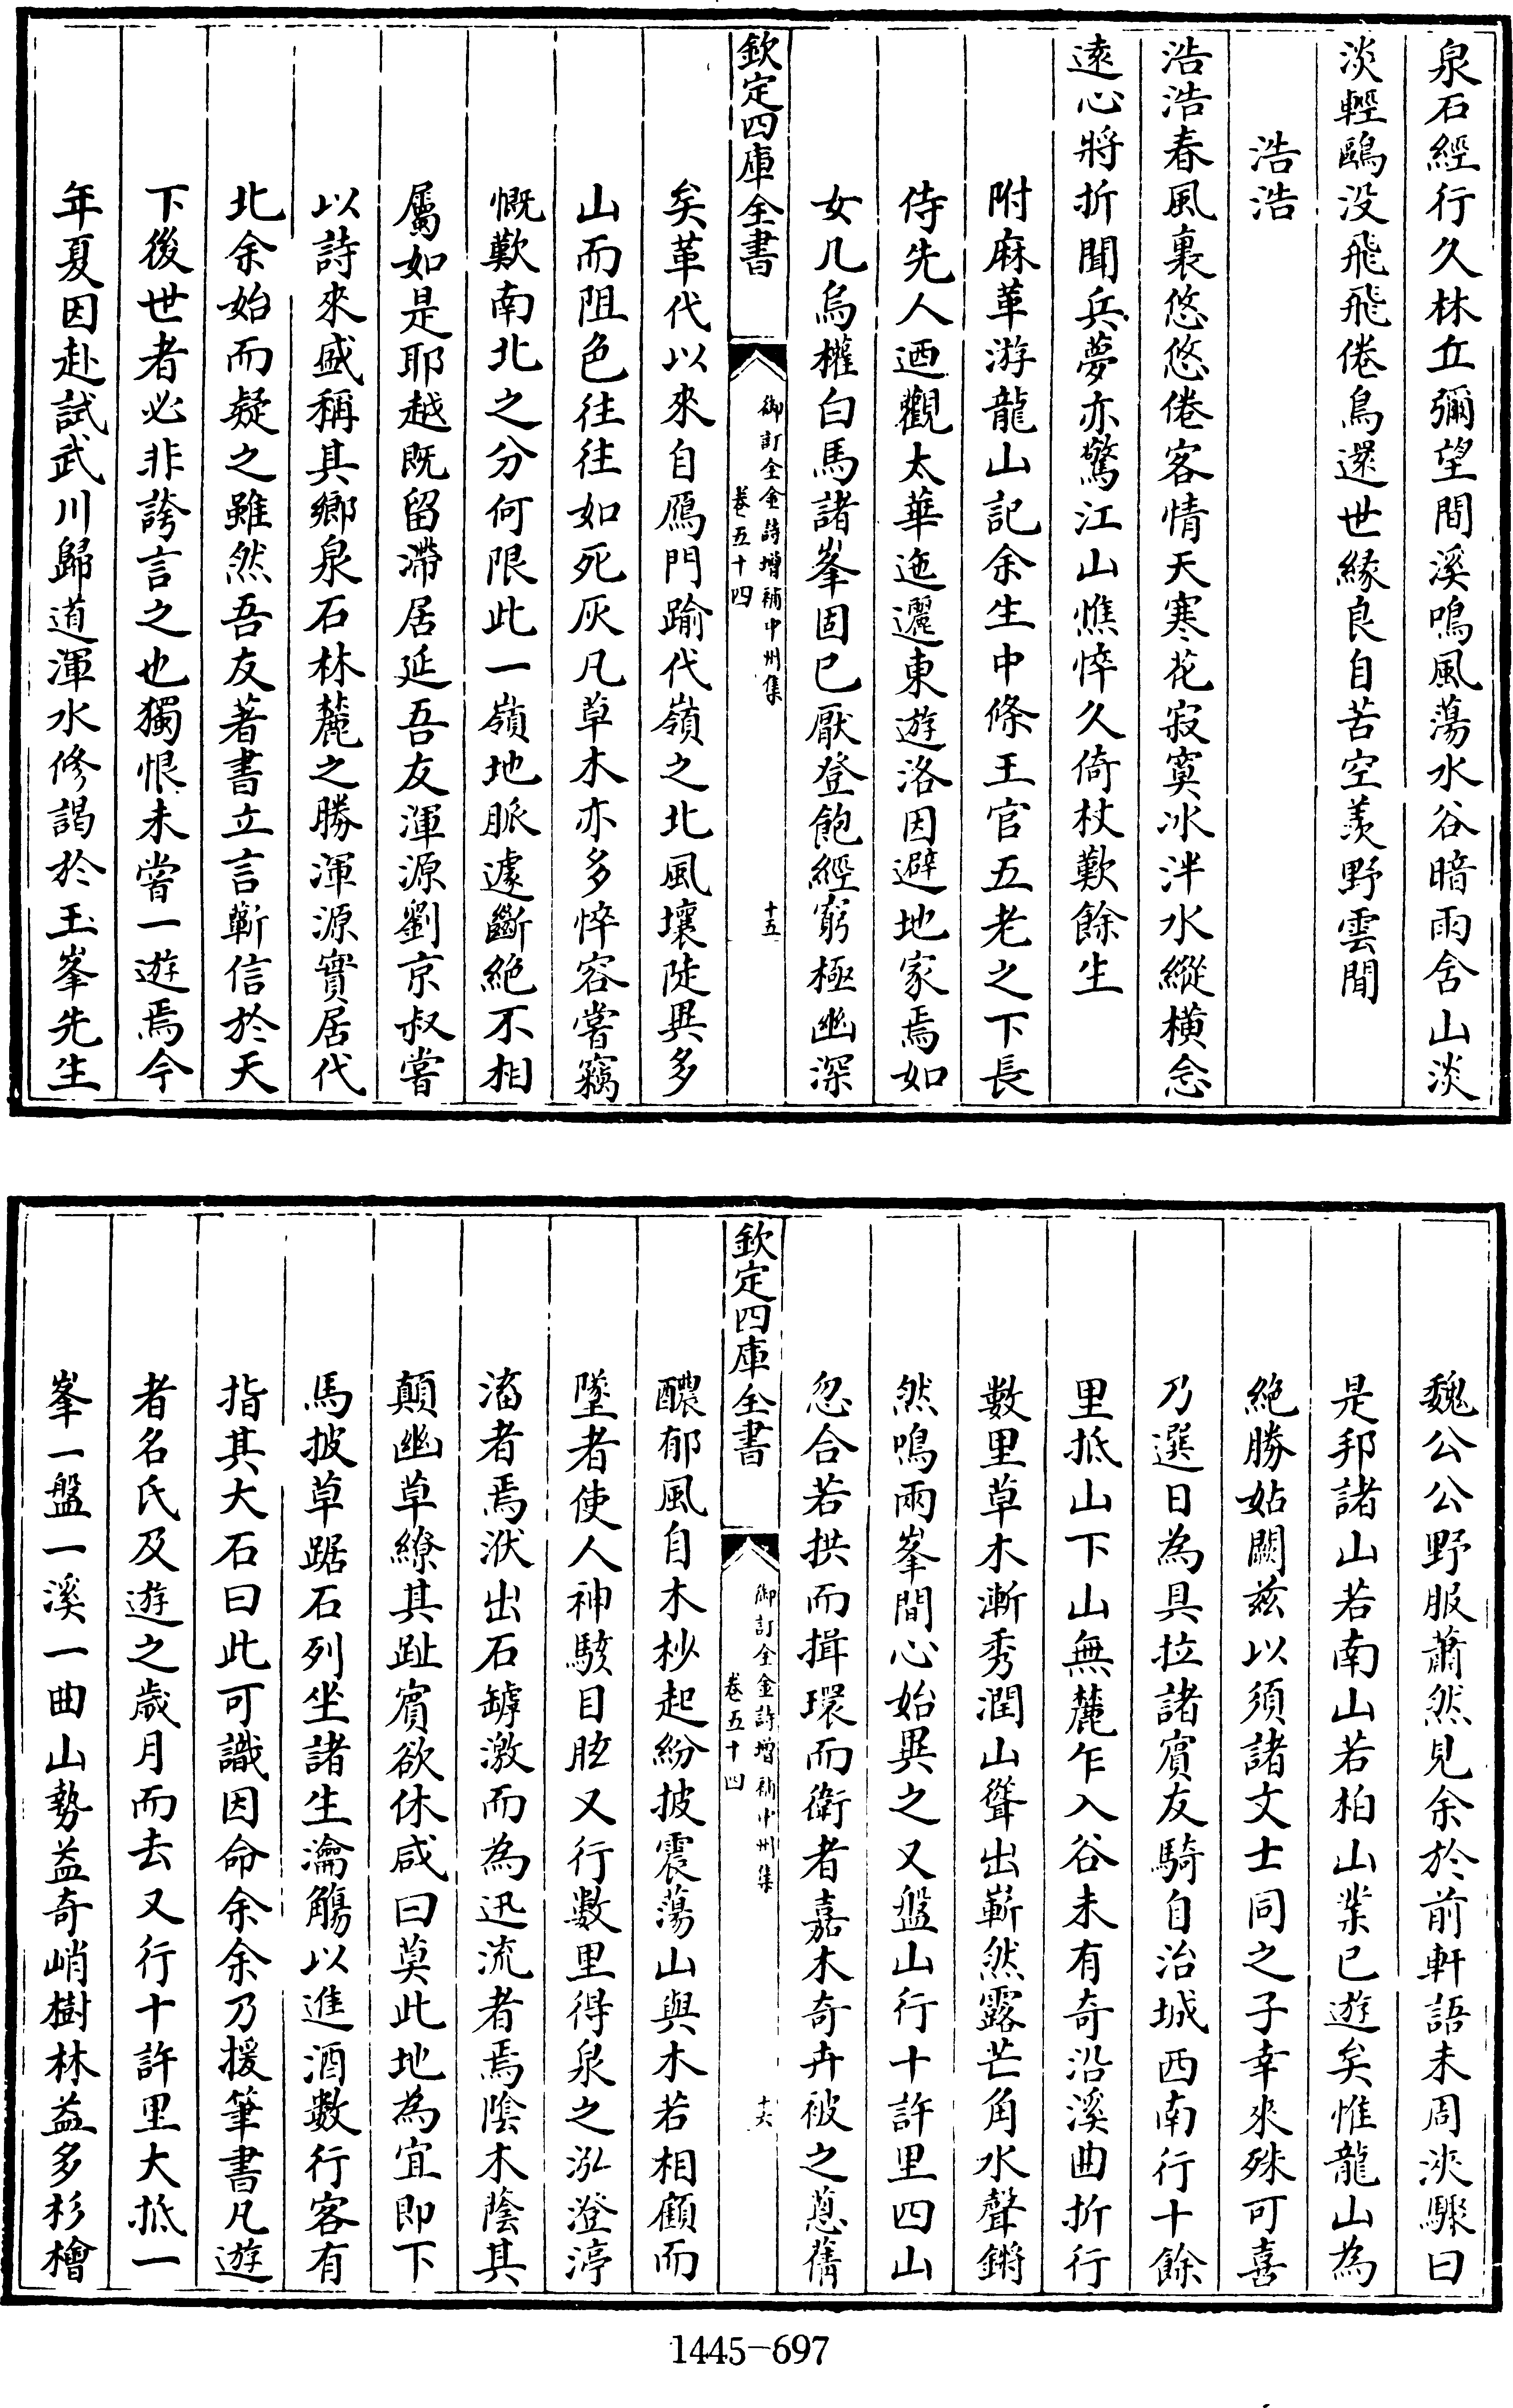 泉石經行久林丘彌望間溪鳴風蕩水谷暗雨含山淡
淡輕鷗没飛飛倦鳥還世緣良自苦空羨野雲閒
浩浩
浩浩春風裏悠悠倦客情天寒花寂寞冰泮水縱横念
逺心將折聞兵夢亦驚江山憔悴久倚杖歎餘生
附麻革游龍山記余生中條王官五老之下長
侍先人西觀太華迤邐東遊洛因避地家焉如
女几烏權白馬諸峯固已厭登飽經窮極幽深
欽定四庫全書
御訂全金詩增補中州集
卷五十四
十五
矣革代以來自鴈門踰代嶺之北風壤陡異多
山而阻色往往如死灰凡草木亦多悴容嘗竊
慨歎南北之分何限此一嶺地脈遽斷絶不相
屬如是耶越既留滯居延吾友渾源劉京叔嘗
以詩來盛稱其鄉泉石林麓之勝渾源實居代
北余始而疑之雖然吾友著書立言蘄信於天
下後世者必非誇言之也獨恨未嘗一遊焉今
年夏因赴試武川歸道渾水修謁於玉峯先生
魏公公野服蕭然見余於前軒語未周浹驟曰
是邦諸山若南山若柏山業已遊矣惟龍山為
絶勝姑闕兹以須諸文士同之子幸來殊可喜
乃選日為具拉諸賓友騎自治城西南行十餘
里抵山下山無麓乍入谷未有奇沿溪曲折行
數里草木漸秀潤山聳出嶄然露芒角水聲鏘
然鳴兩峯間心始異之又盤山行十許里四山
忽合若拱而揖環而衛者嘉木奇卉被之蔥蒨
欽定四庫全書
御訂全金詩增補中州集
卷五十四
十六
醲郁風自木杪起紛披震蕩山與木若相顧而
墜者使人神駭目眩又行數里得泉之泓澄渟
滀者焉洑出石罅激而為迅流者焉陰木蔭其
顛幽草繚其趾賓欲休咸曰莫此地為宜即下
馬披草踞石列坐諸生瀹觴以進酒數行客有
指其大石曰此可識因命余余乃援筆書凡遊
者名氏及遊之歲月而去又行十許里大抵一
峯一盤一溪一曲山勢益奇峭樹林益多杉檜
1445-697